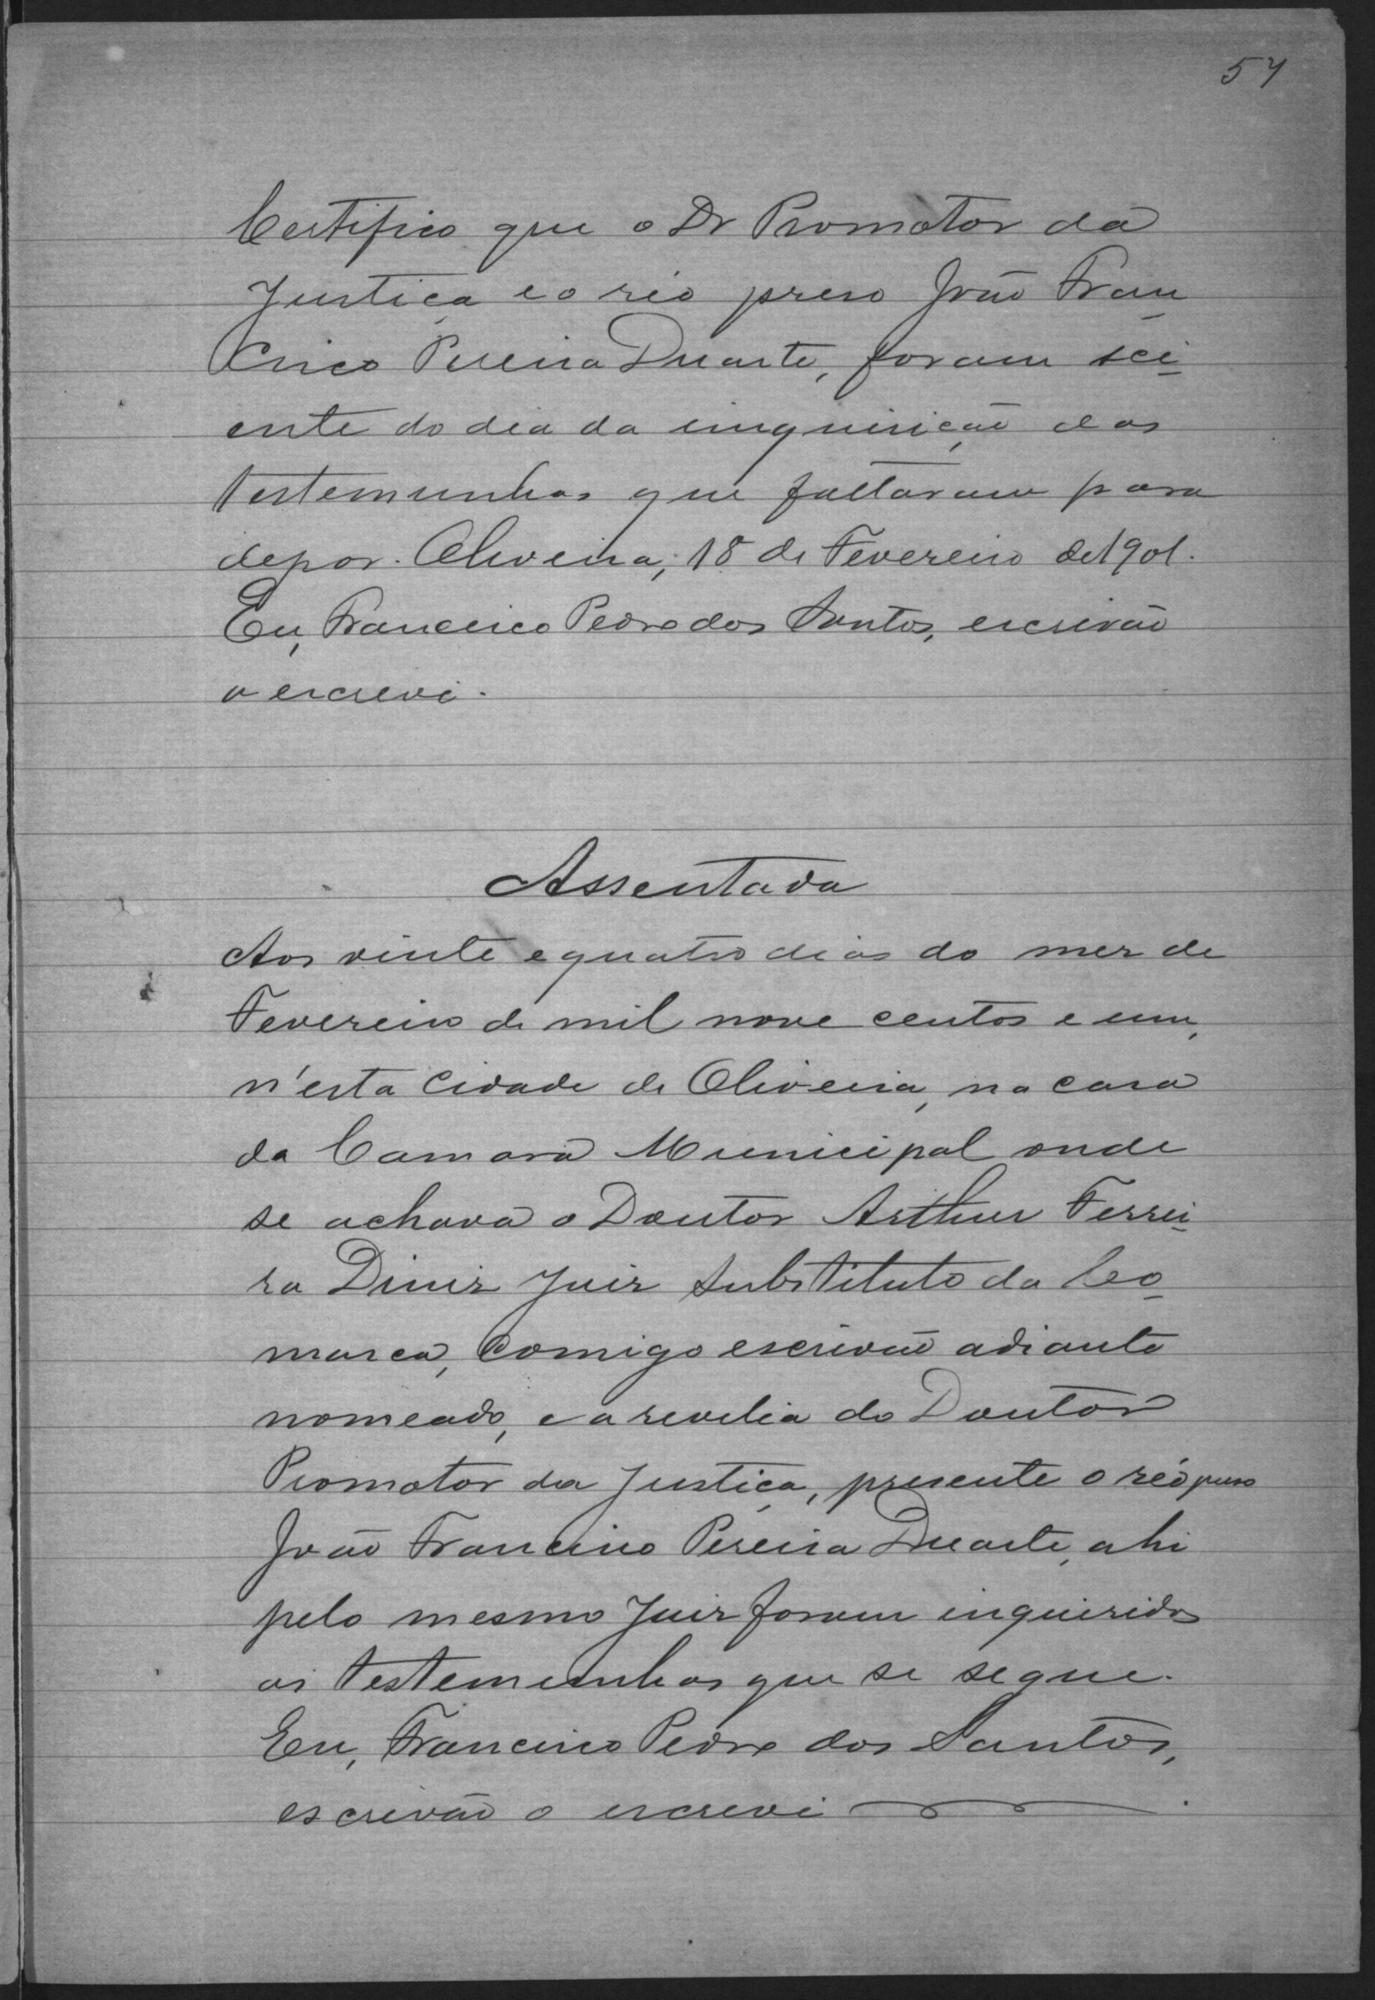 57
Certifico que o Dr Promotor da
Justiça e o réo preso João Fran
cisco Pereira Duarte, foram sci-
ente do dia da inquirição das
testemunhas que faltaram para
depor. Oliveira, 18 de Fevereiro de 1901.
Eu, Francisco Pedro dos Santos, escrivão
o escrevi.
Assentada
Aos vinte e quatro dias do mez de
Fevereiro de mil nove centos e um,
n'esta Cidade de Oliveira, na casa
da Camara Municipal onde
se achava o Doutor Arthur Ferrei-
ra Diniz Juiz Substituto da Co-
marca, Comigo escrivão adiante
nomeado, e a revelia do Doutor
Promotor da Justiça, presente o réo preso
João Francisco Pereira Duarte, ahi
pelo mesmo Juiz foram inqueridos
as testemunhas que se segue.
Eu, Francisco Pedro dos Santos,
escrivão o escrevi.